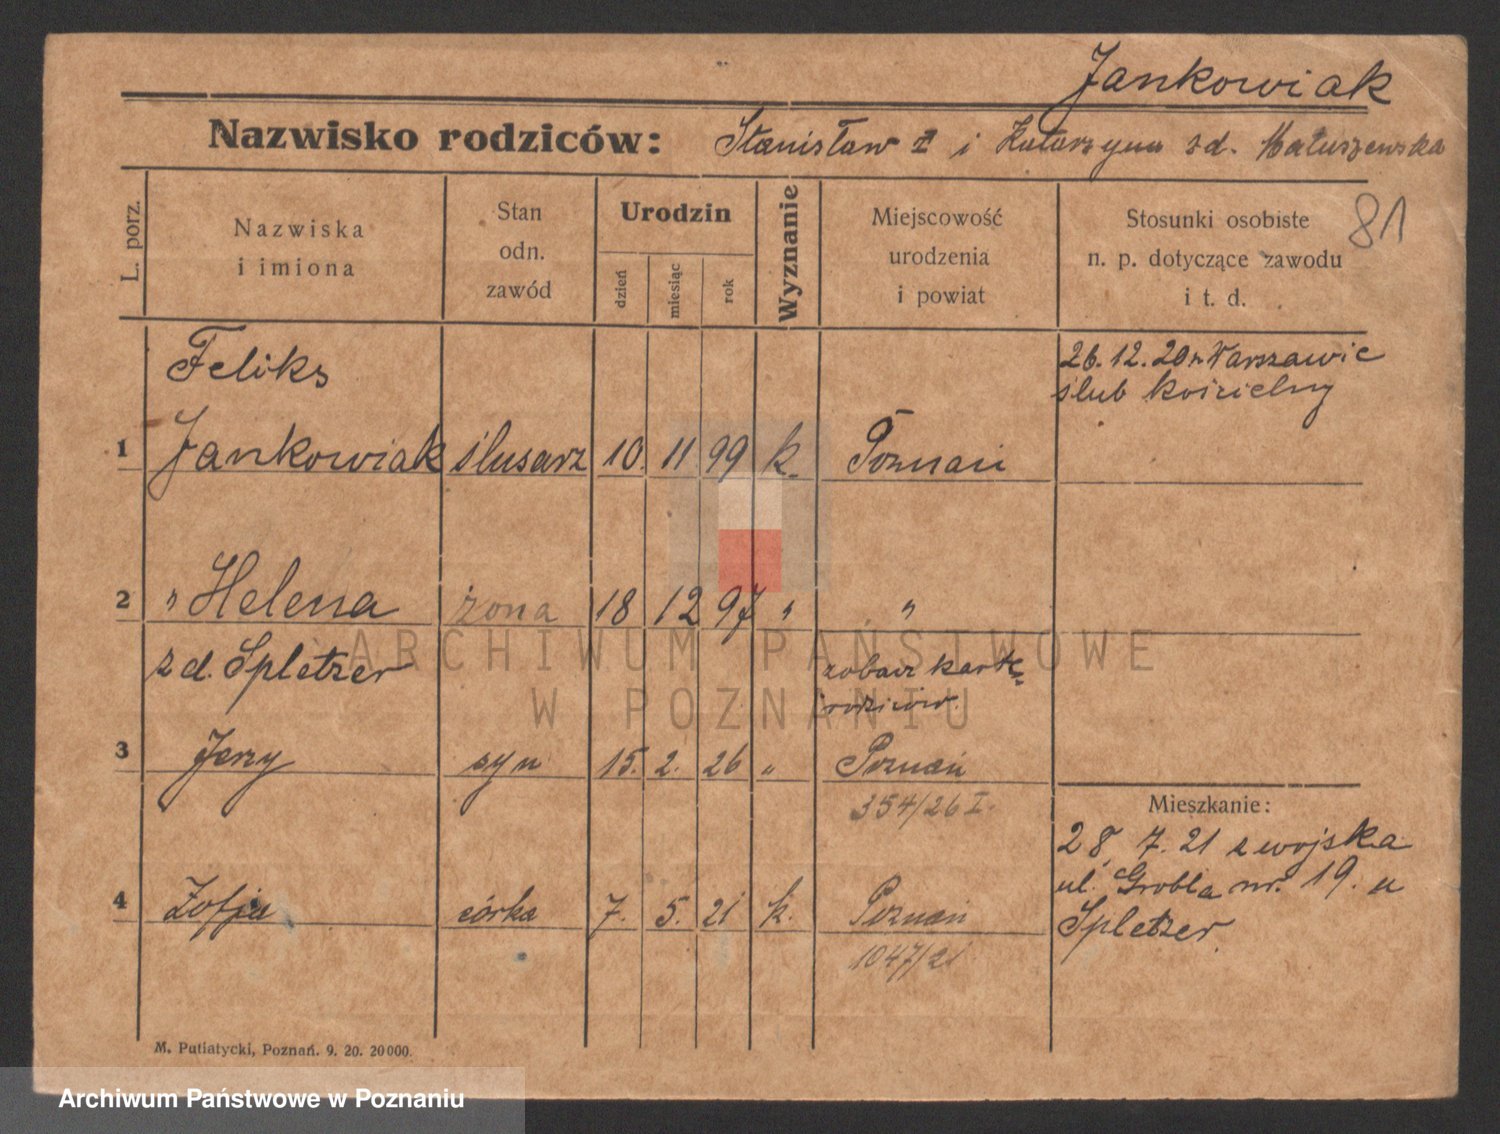 Jankowiak
Nazwisko rodziców: Stanisław i Katarzyna zd. Matuszewska
81
L. porz.
Nazwiska
i imiona
Stan
odn.
zawód
Urodzin
dzień
miesiąc
rok
Wyznanie
Miejscowość
urodzenia
i powiat
Stosunki osobiste
n. p. dotyczące zawodu
i t. d.
Feliks
26.12.20 w Warszawie
ślub kościelny
1 Jankowiak ślusarz 10. 11 99 k. Poznań
2 " Helena żona 18 12 97 " "
zd. Spletzer
zobacz kartę
rodziców.
3 Jerzy syn 15. 2. 26 " Poznań
354/26 I.
Mieszkanie:
28. 7. 21 z wojska
ul. Grobla nr. 19. u
Spletzer.
4 Zofja córka 7. 5. 21 k. Poznań
1047/21
M. Putiatycki, Poznań. 9. 20. 20000.
ARCHIWUM PAŃSTWOWE
W POZNANIU
Archiwum Państwowe w Poznaniu